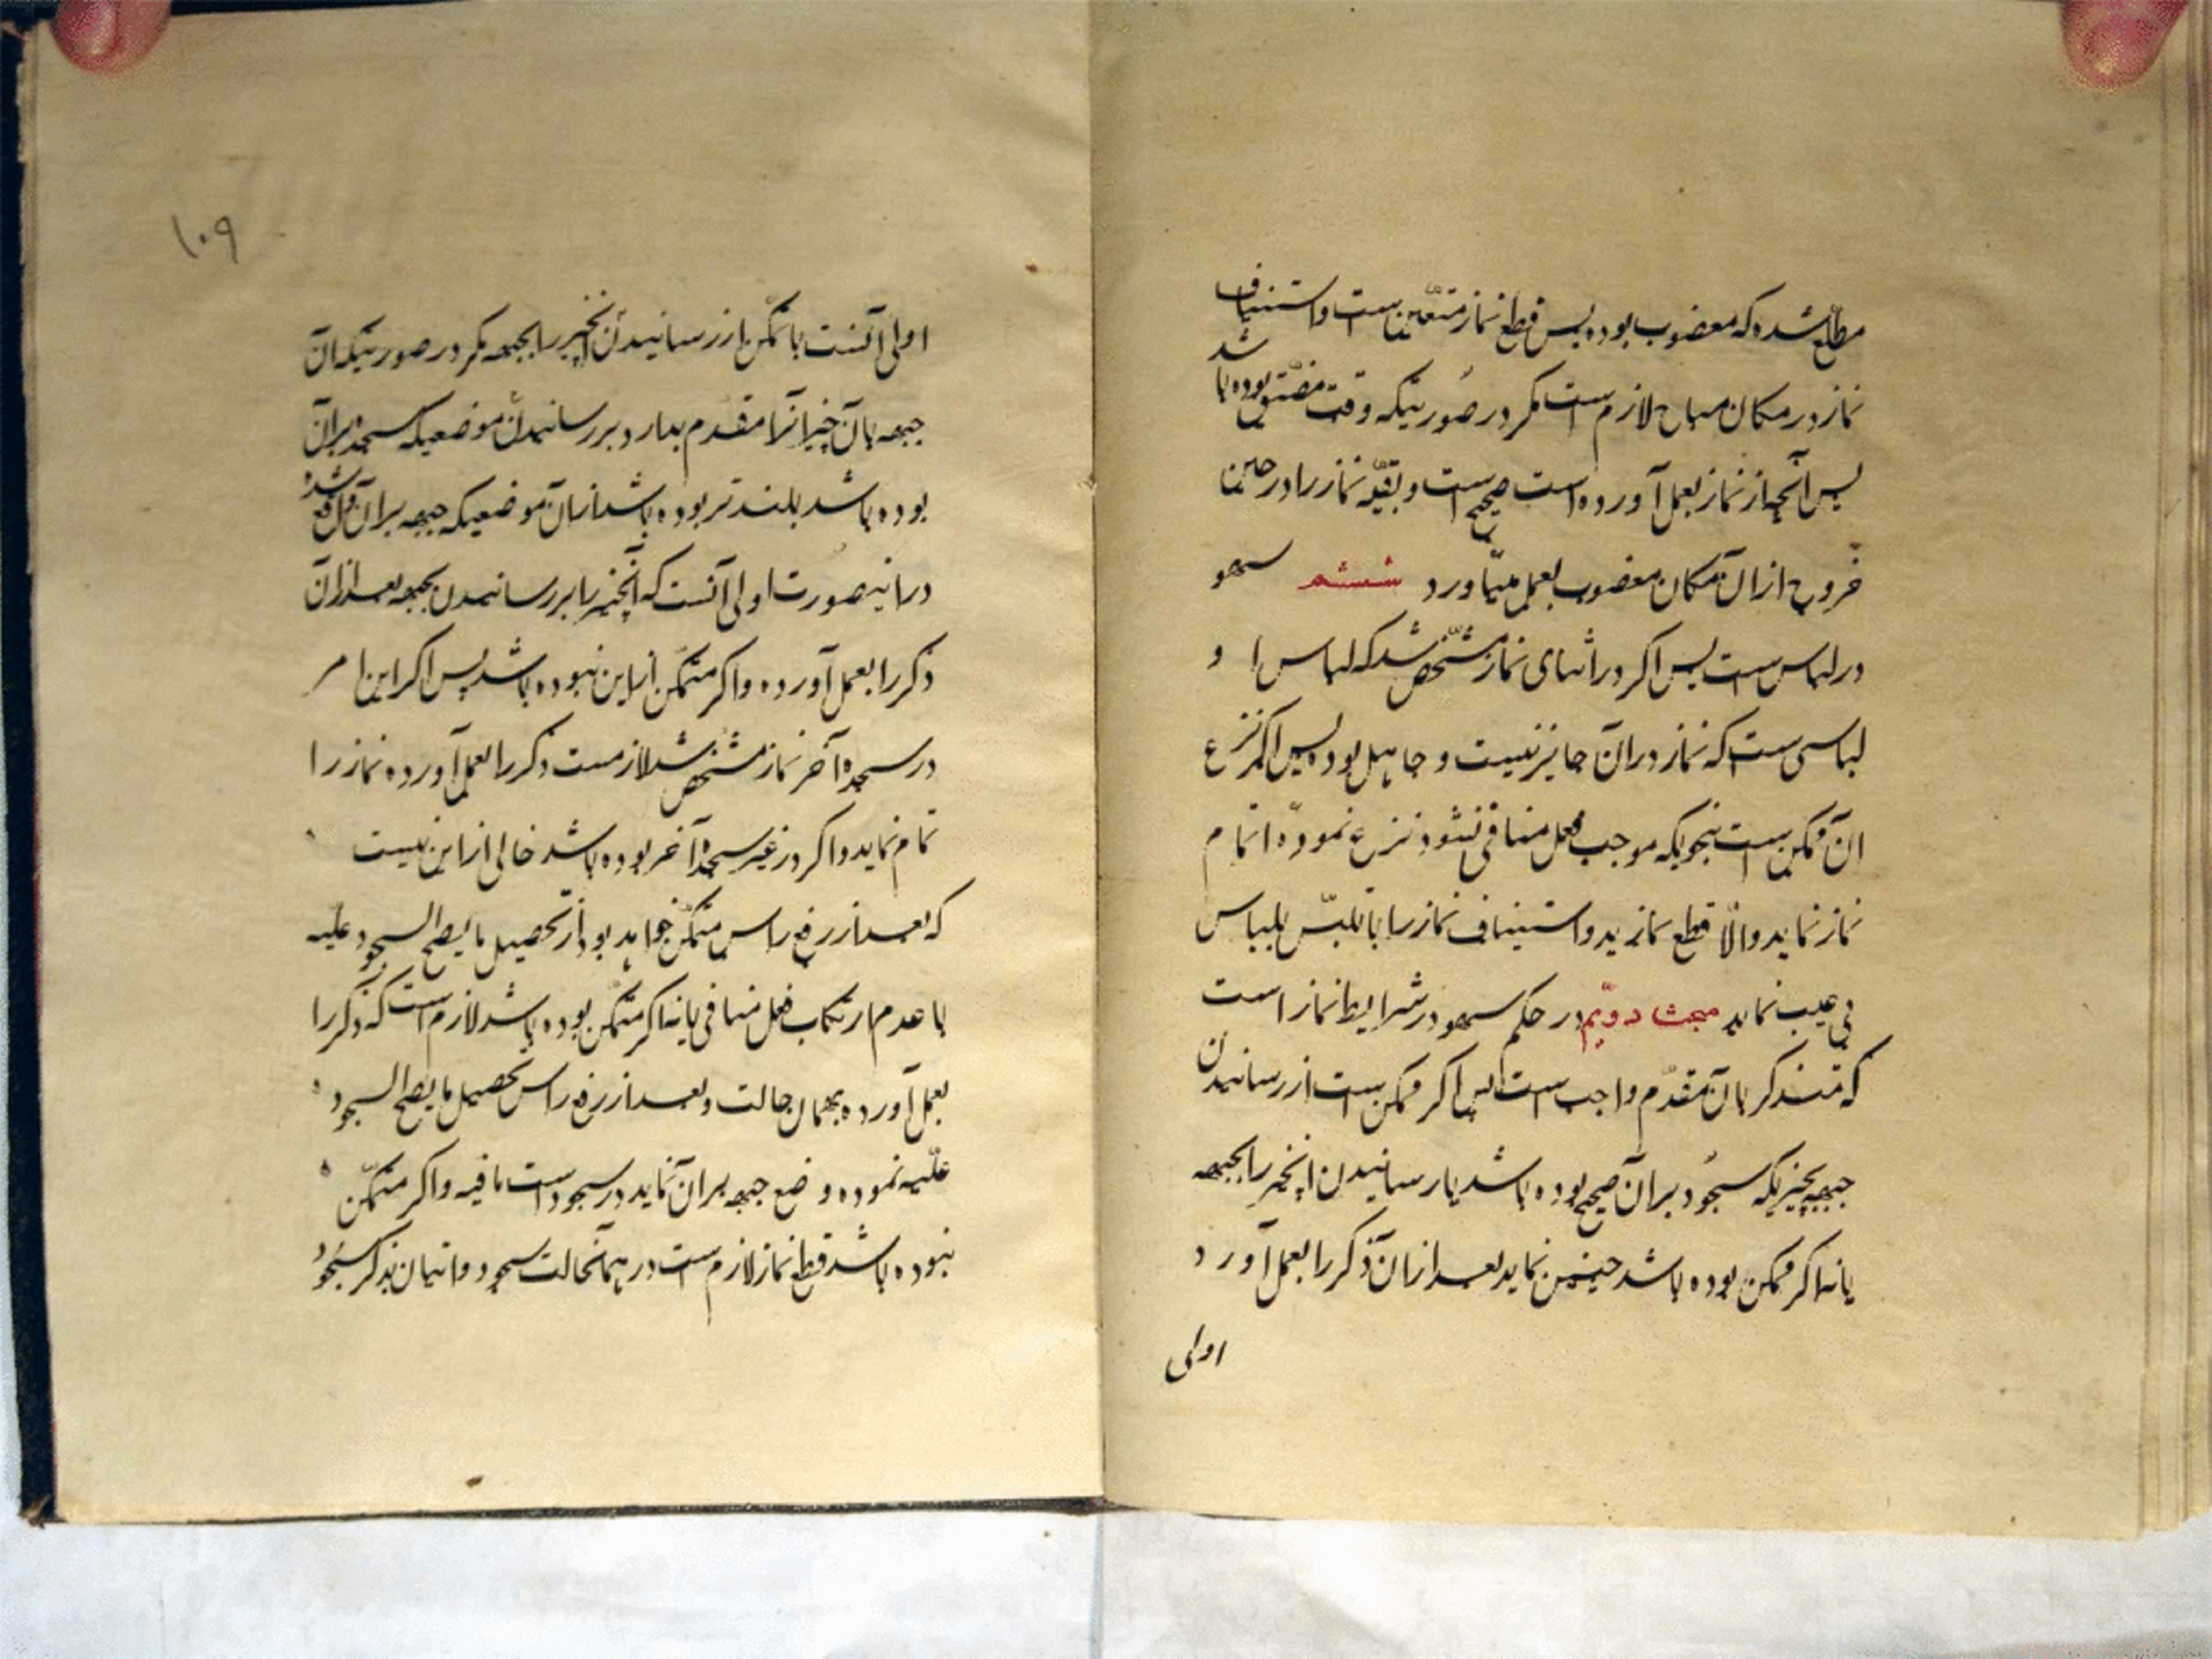 مطلع شده که مغضوب بوده پس قطع نماز متعین است و استیناف
نماز در مکان مباح لازم است مگر در صورتیکه وقت مضیق بوده باشد
پس آنچه از نماز بعمل آورده است صحیح است و بقیّه نماز را در حین
خروج از آن مکان مغضوب بعمل میآورد ششم سهو
در لباس است پس اگر در اثنای نماز مشخّص شد که لباس او
لباسی است که نماز در آن جایز نیست و جاهل بوده پس اگر نزع
آن ممکن است بنحویکه موجب فعل منافی نشود نزع نموده اتمام
نماز نماید و الّا قطع نماید و استیناف نماز را با تلبّس بلباس
بی عیب نماید مبحث دویّم در حکم سهو در شرایط نماز است
که متذکر بآن مقدّم واجب است پس اگر ممکن است از رسانیدن
جبهه بچیزیکه سجُود بر آن صحیح بوده باشد یا رسانیدن آنچیز را بجبهه
یا نه اگر ممکن بوده باشد چنین نماید بعد از آن ذکر را بعمل آورد
اولی
١٠٩
اولی آنست با تمکّن از رسانیدن آنچیز را بجبهه مگر در صورتیکه آن
جبهه بآن چیز آنرا مقدم بدارد بر رسانیدن موضعیکه سجده بر آن
بوده باشد بلندتر بوده باشد از آن موضعیکه جبهه بر آن واقع شده
در اینصورت اولی آنست که آنچیز را بر رسانیدن بجبهه بعد از آن
ذکر را بعمل آورده و اگر متمکّن از این نبوده باشد پس اگر این امر
در سجدهٔ آخر نماز مشخص شد لازمست ذکر را بعمل آورده نماز را
تمام نماید و اگر در غیر سجدهٔ آخر بوده باشد خالی از این نیست
که بعد از رفع راس متمکّن خواهد بود از تحصیل ما یصح السجود علیه
با عدم ارتکاب فعل منافی یا نه اگر متمکّن بوده باشد لازم است که ذکر را
بعمل آورده بهمان حالت و بعد از رفع راس تحصیل ما یصح السجود
علیه نموده وضع جبهه بر آن نماید در سجودات باقیه و اگر متمکّن
نبوده باشد قطع نماز لازم است در همانحالت سجود و اتیان بذکر سجُود